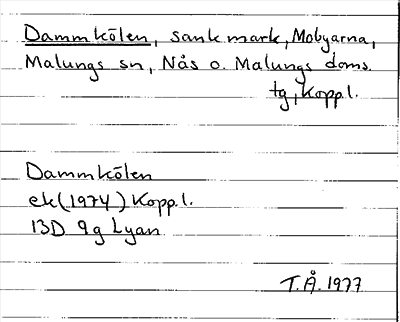 Dammkölen, sank mark, Mobyarna,
Malungs sn, Nås o. Malungs doms.
tg, Kopp.l.
Dammkölen
ek (1974) Kopp.l.
13D 9g Lyan
T.Å. 1977